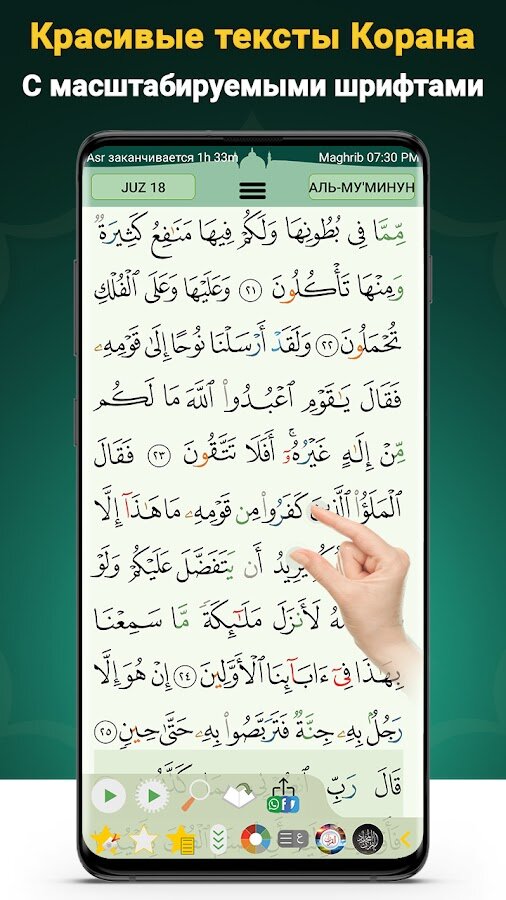 Красивые тексты Корана
С масштабируемыми шрифтами
Asr заканчивается 1h 33m Maghrib 07:30 PM
JUZ 18 АЛЬ-МУ'МИНУН
مِّمَّا فِى بُطُونِهَا وَلَكُمْ فِيهَا مَنَٰفِعُ كَثِيرَةٌ
وَمِنْهَا تَأْكُلُونَ ٢١ وَعَلَيْهَا وَعَلَى ٱلْفُلْكِ
تُحْمَلُونَ ٢٢ وَلَقَدْ أَرْسَلْنَا نُوحًا إِلَىٰ قَوْمِهِۦ
فَقَالَ يَٰقَوْمِ ٱعْبُدُوا۟ ٱللَّهَ مَا لَكُم
مِّنْ إِلَٰهٍ غَيْرُهُۥٓ ۚ أَفَلَا تَتَّقُونَ ٢٣ فَقَالَ
ٱلْمَلَؤُا۟ ٱلَّذِينَ كَفَرُوا۟ مِن قَوْمِهِۦ مَا هَٰذَآ إِلَّا
يُرِيدُ أَن يَتَفَضَّلَ عَلَيْكُمْ وَلَوْ
لَأَنزَلَ مَلَٰٓئِكَةً مَّا سَمِعْنَا
بِهَٰذَا فِىٓ ءَابَآئِنَا ٱلْأَوَّلِينَ ٢٤ إِنْ هُوَ إِلَّا
رَجُلٌۢ بِهِۦ جِنَّةٌ فَتَرَبَّصُوا۟ بِهِۦ حَتَّىٰ حِينٍ ٢٥
قَالَ رَبِّ